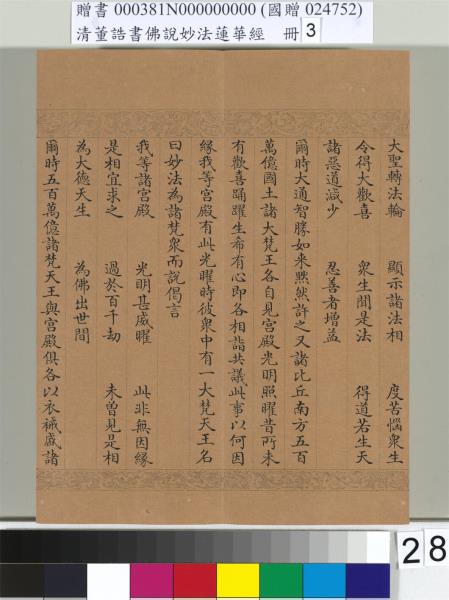 贈書 000381N000000000 (國贈 024752)
清董誥書佛說妙法蓮華經　冊 3
大聖轉法輪　顯示諸法相　度苦惱眾生
令得大歡喜　眾生聞是法　得道若生天
諸惡道減少　忍善者增益
爾時大通智勝如来默然許之又諸比丘南方五百
萬億國土諸大梵王各自見宮殿光明照曜昔所未
有歡喜踊躍生希有心即各相詣共議此事以何因
緣我等宮殿有此光曜時彼眾中有一大梵天王名
曰妙法為諸梵眾而說偈言
我等諸宮殿　光明甚威曜　此非無因緣
是相宜求之　過於百千劫　未曾見是相
為大德天生　為佛出世間
爾時五百萬億諸梵天王與宮殿俱各以衣祴盛諸
28